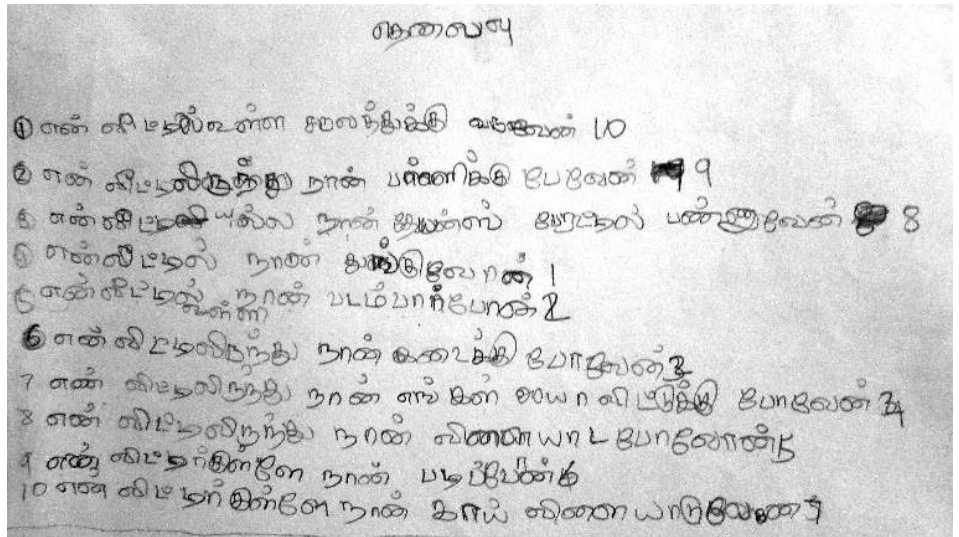 தெலைவு
① என் விட்டில்உள்ள சலத்துக்கு வருவேன் 10
② என் விட்டிலிருந்து நான் பள்ளிக்கு பேவேன் 9
என் விட்டியுல்ல நான் பண்ணுவேன் 8
என்விட்டில் நான் துங்குவோன் 1
5 என்விட்டில் உள்ள நான் படம்பார்போன் 2
⑥ என் விட்டிலிருந்து நான் கடைக்கு போவேன் 3
7 என் விட்டிலிருந்து நான் எங்கள் விட்டுக்கு போவேன் 4
8 என் விட்டிலிருந்து நான் வினளயாட போலோன் 5
9 என் விட்டிர்குள்ளே நான் படிப்பேன் 6
10 என் விட்டிர்குள்ளே நான் காய் வினளயாடுவேன 7